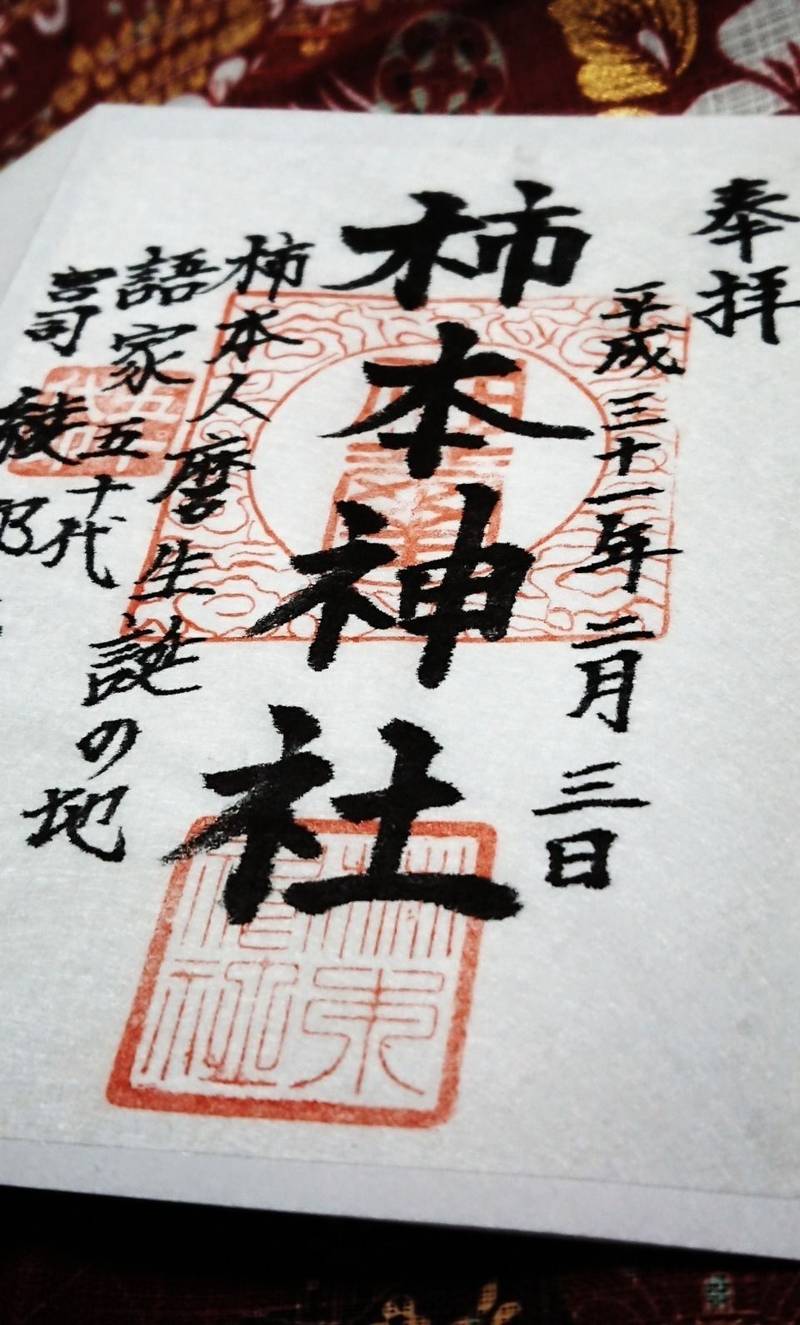 奉拝
平成三十一年二月三日
柿本神社
柿本人麿生誕の地
語家五十代
宮司 綾部